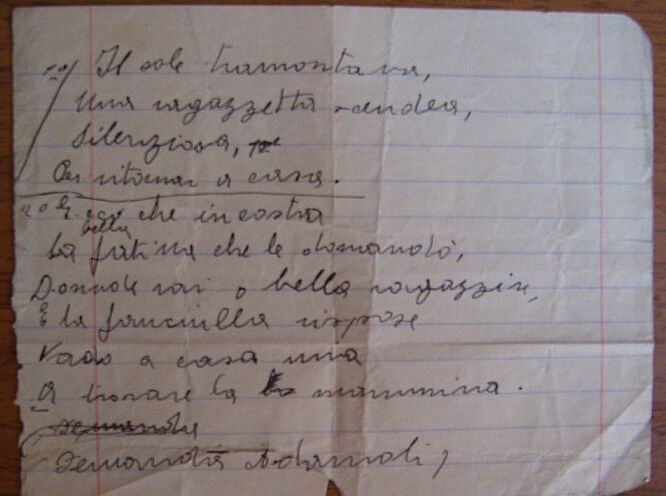 1º) Il sole tramontava,
Una ragazzetta
Silenziosa,
Per ritornar a casa.
2º E che incostra
La bella fatina che le domandò,
Donnde vai o bella ragazzin,
E la fanciulla rispose
Vado a casa mia
A trovare la mammina.